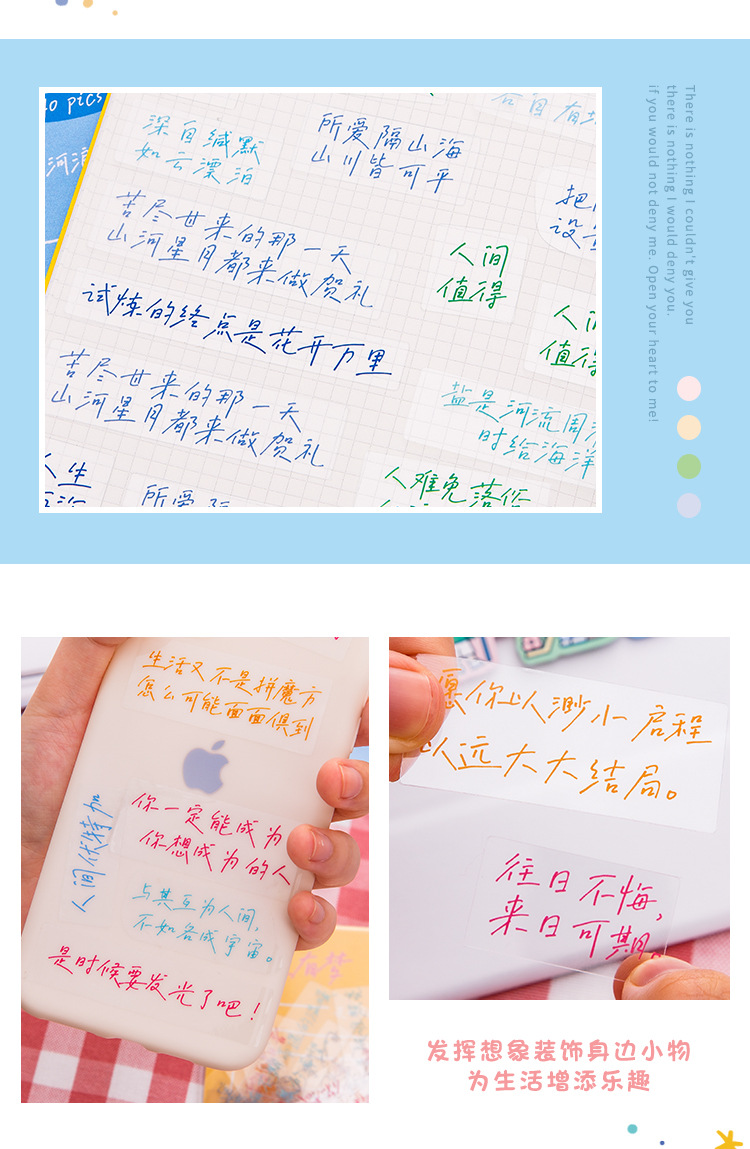 40 pics
河流
深自缄默
如云漂泊
所爱隔山海
山川皆可平
苦尽甘来的那一天
山河星月都来做贺礼
人间
值得
试炼的终点是花开万里
人间
值得
苦尽甘来的那一天
山河星月都来做贺礼
盐是河流周
时给海洋
人生
所爱隔
人难免落俗
There is nothing I couldn't give you
there is nothing I would deny you.
if you would not deny me. Open your heart to me!
生活又不是拼魔方
怎么可能面面俱到
你一定能成为
你想成为的人
人间伏特加
与其互为人间,
不如各成宇宙。
是时候要发光了吧!
愿你以渺小启程
以远大大结局。
往日不悔,
来日可期。
发挥想象装饰身边小物
为生活增添乐趣